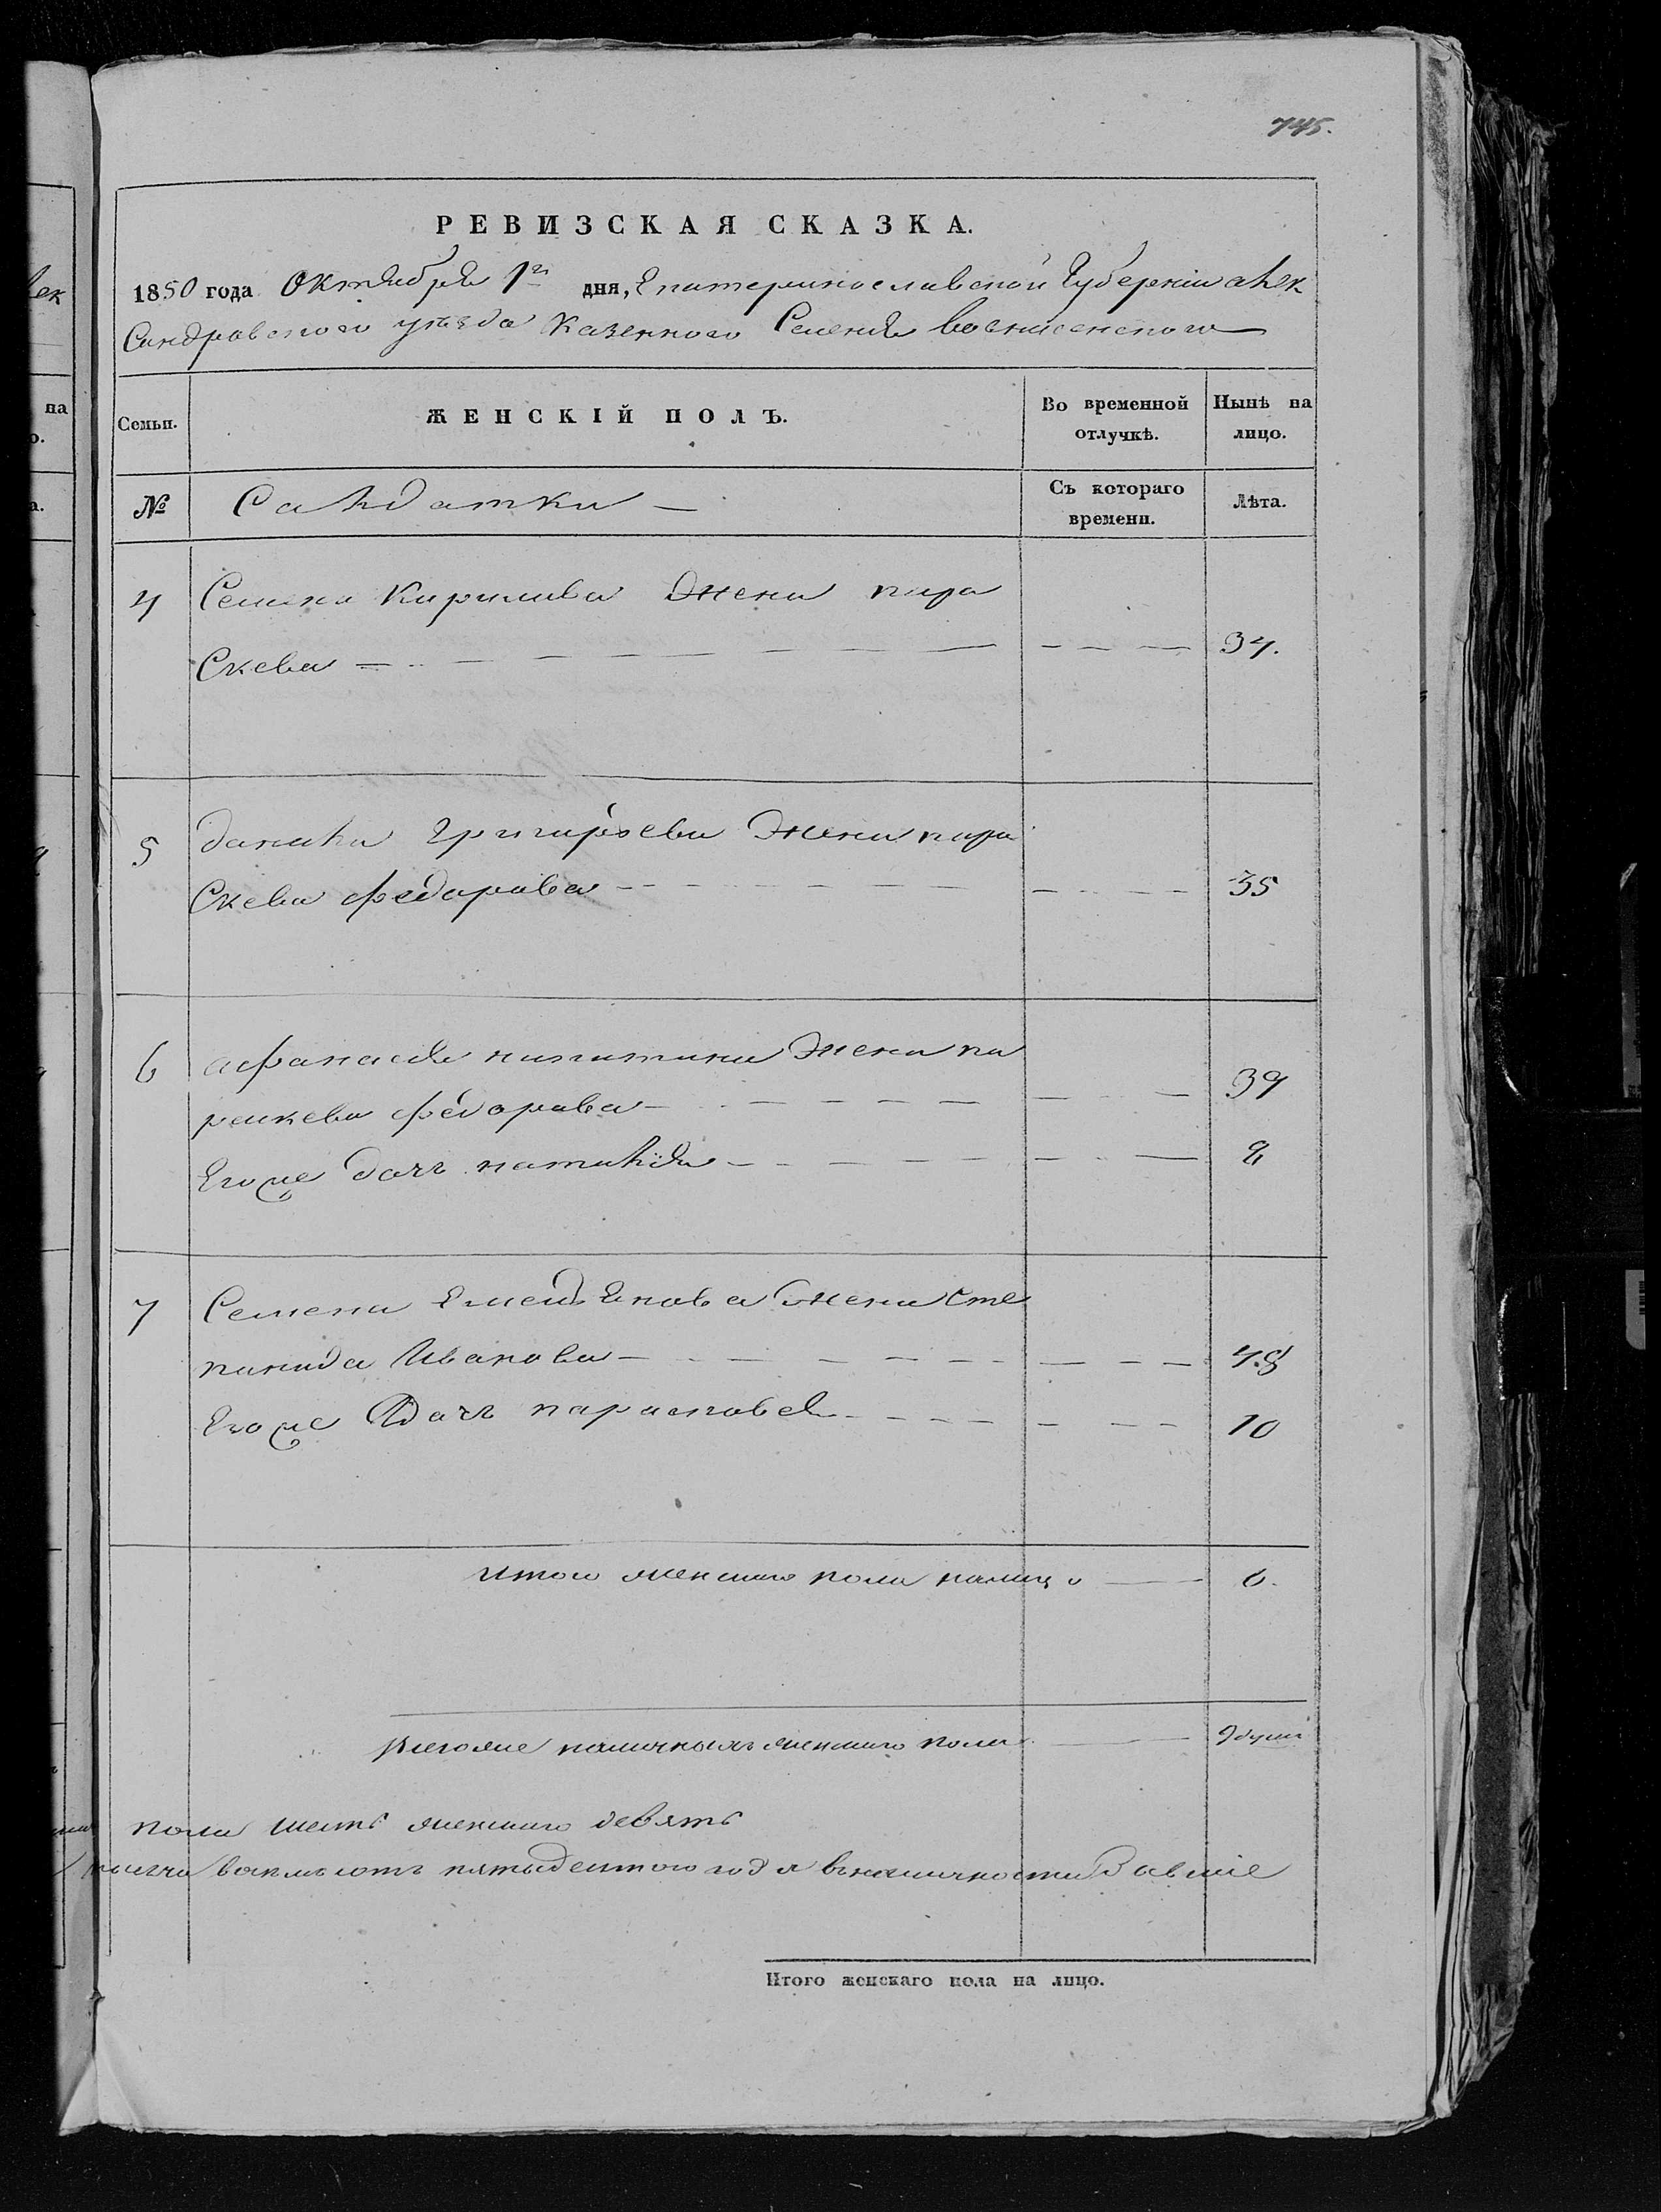 745.
РЕВИЗСКАЯ СКАЗКА.
1850 года Октября 1го дня, Екатеринославской Губернiи алек
Сандровского уѣзда Казенного Селенія вознисенского
Семьи.
ЖЕНСКІЙ ПОЛЪ.
Во временной отлучкѣ.
Нынѣ на лицо.
№
Салдатки
Съ котораго времени.
Лѣта.
4 Семена Кирилива Жена пара
Скева 34.
5 данила Григирьева Жена пара
Скева федарава 35
6 афанасія никитина Жена па
раскева федарава 39
Егоже дочь наталія 2
7 Семена Емельянова Жена Сте
панида Иванова 48
Егоже Дочь парасковея 10
Итого женскаго пола налицо 6.
Всегоже наличныхъ женскаго пола 9 душъ
пола шесть женскаго девять
тысяча восемьсотъ пятьдесятого года вналичности
Итого женскаго пола на лицо.